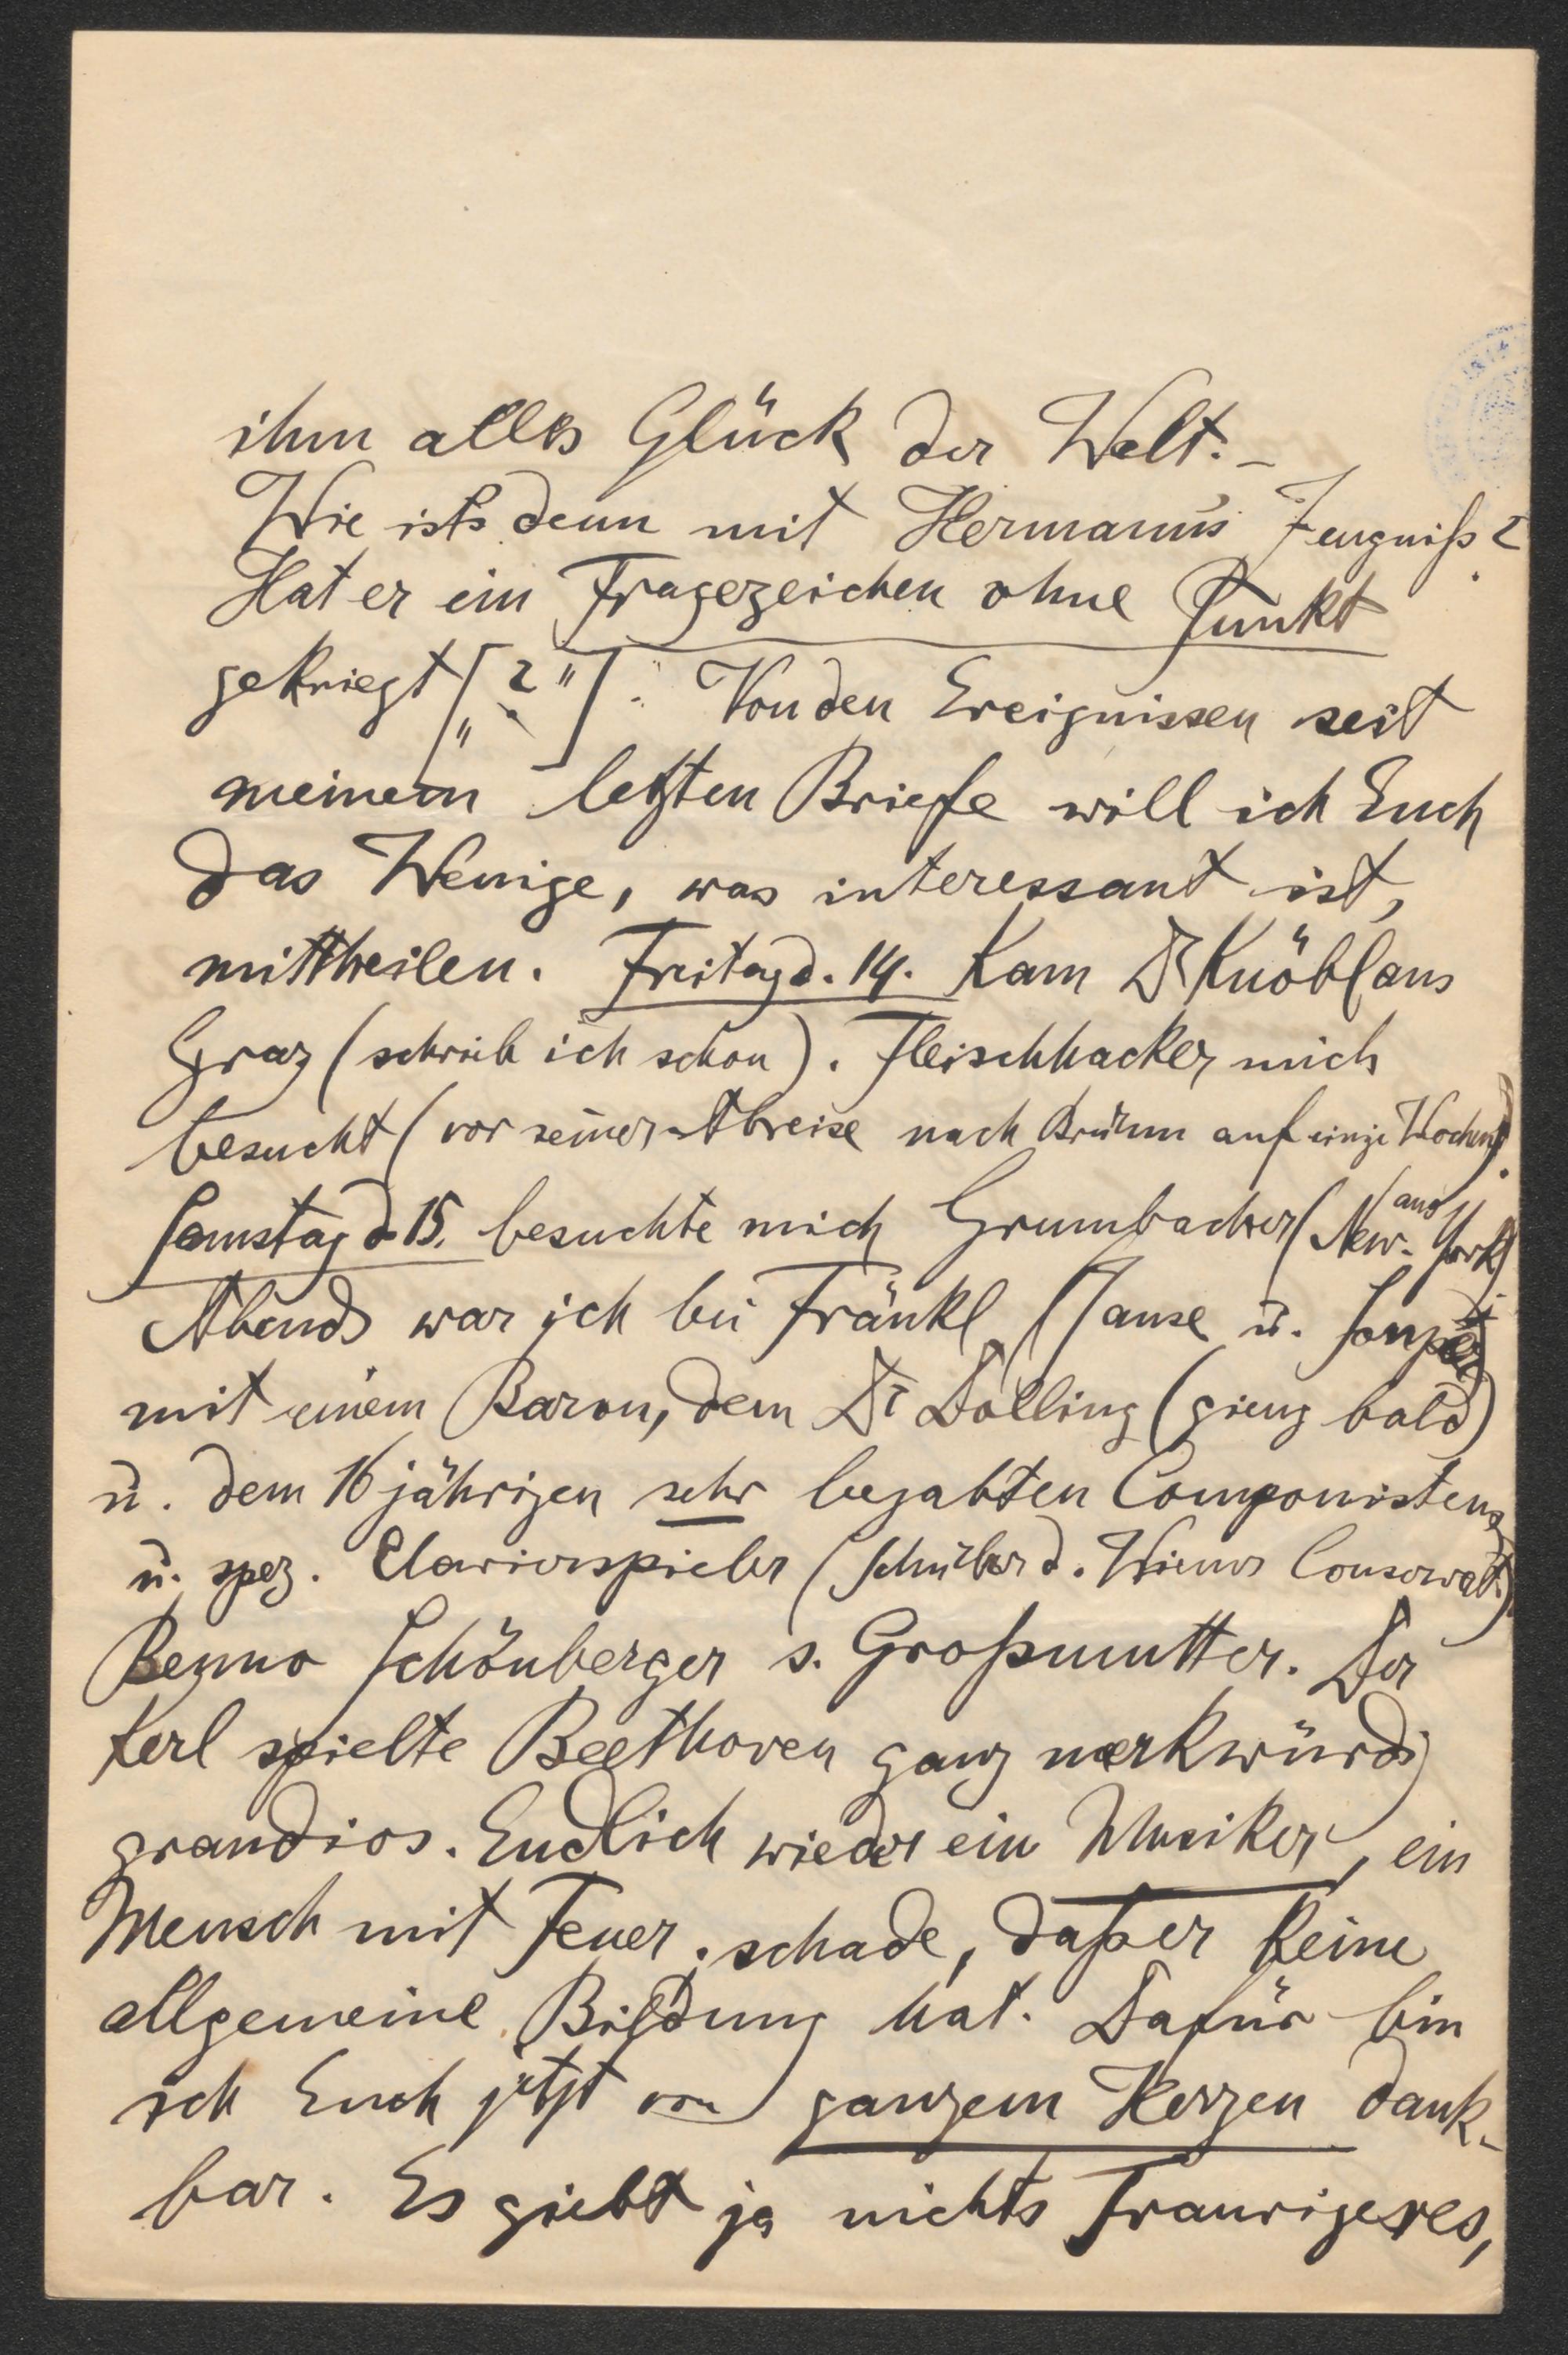 ihm alles Glück der Welt. –
Wie ists denn mit Hermann's Zeugniß?
Hat er ein Fragezeichen ohne Punkt
gekriegt [„?"]. Von den Ereignissen seit
meinem letzten Briefe will ich Euch
das Wenige, was interessant ist,
mittheilen. Freitag d. 14. kam Dr Knöbl aus
Graz (schrieb ich schon). Fleischhacker mich
besucht (vor seiner Abreise nach Brünn auf einige Wochen).
Samstag d 15. besuchte mich Grumbacher (aus New-York)
Abends war ich bei Fränkl (Jause u. Souper)
mit einem Baron, dem Dr Dolling (gieng bald)
u. dem 16 jährigen sehr begabten Componisten
u. spez. Clavierspieler (Schüler d. Wiener Conservat.)
Benno Schönberger s. Großmutter. Der
Kerl spielte Beethoven ganz merkwürdig
grandios. Endlich wieder ein Musiker, ein
Mensch mit Feuer. schade, daß er keine
allgemeine Bildung hat. Dafür bin
ich Euch jetzt von ganzem Herzen dank-
bar. Es giebt ja nichts Traurigeres,